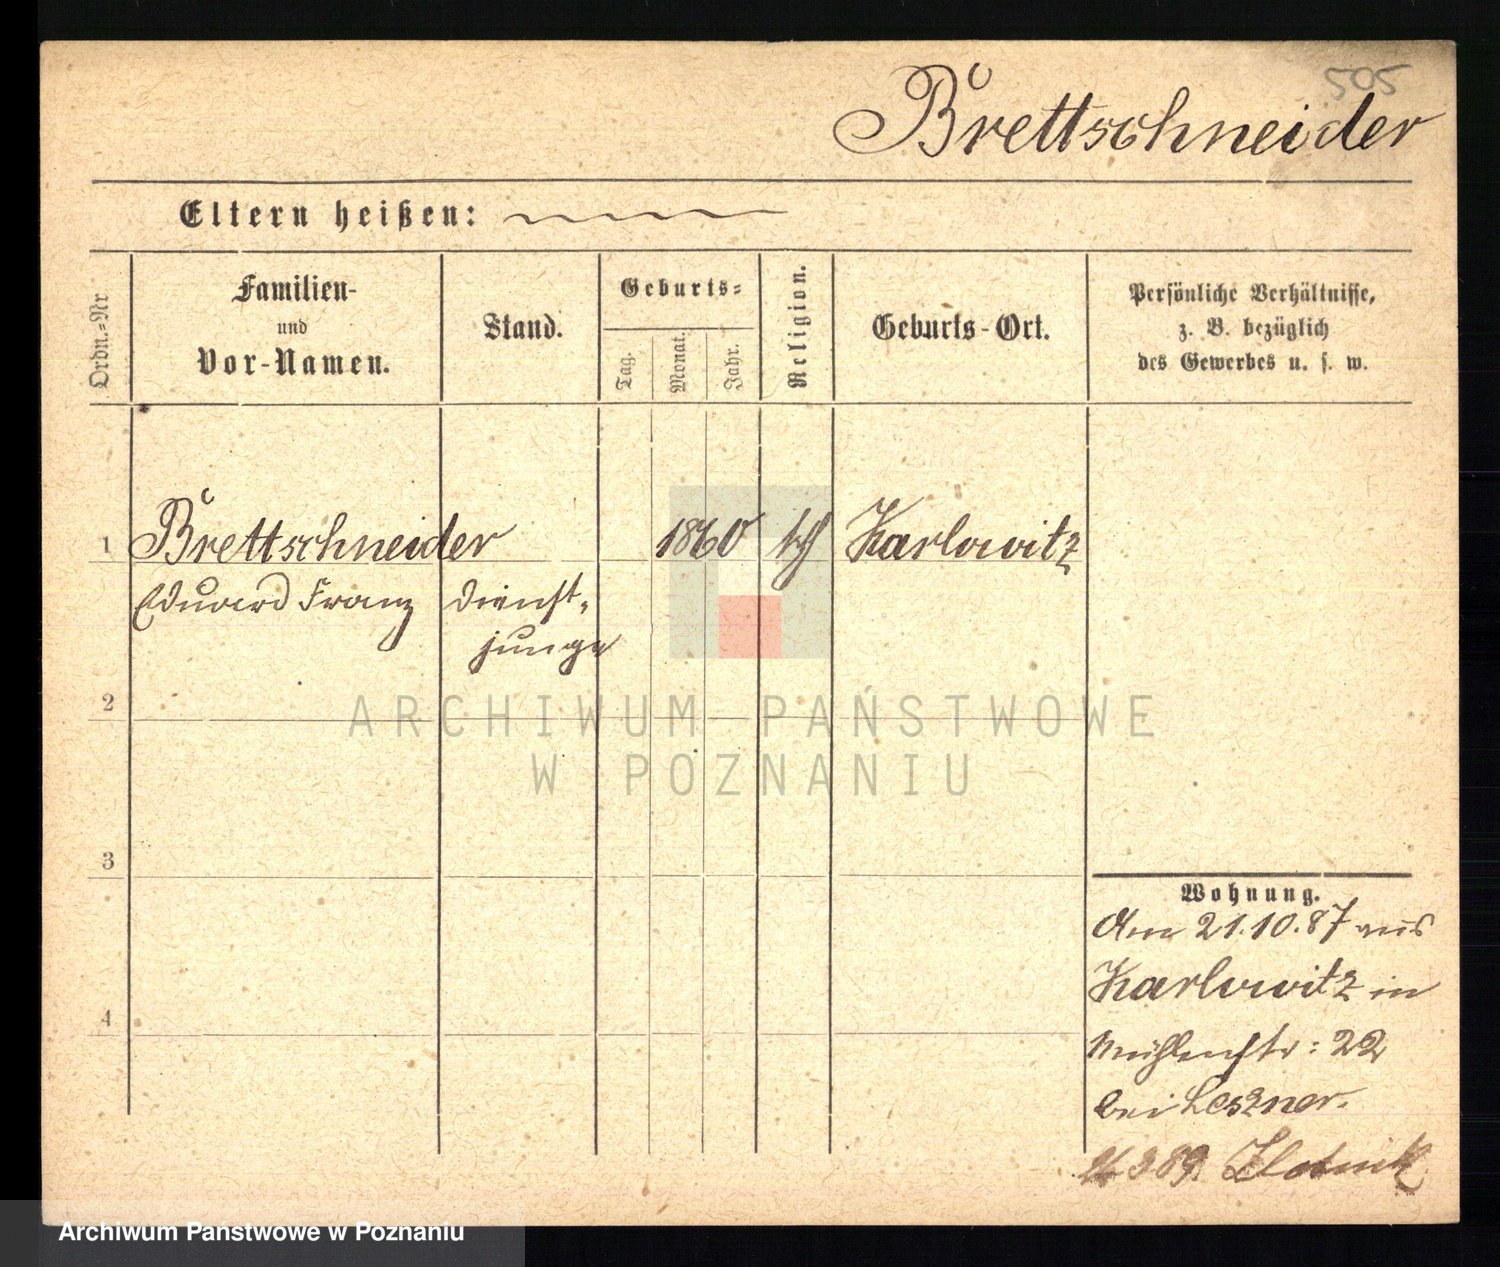 505
Brettschneider
Eltern heißen:
Ordn.=Nr
Familien-
und
Vor-Namen.
Stand.
Geburts=
Tag.
Monat.
Jahr.
Religion.
Geburts-Ort.
Persönliche Verhältnisse,
z. B. bezüglich
des Gewerbes u. s. w.
1 Brettschneider 1860 Karlowitz
Eduard Franz Dienst-
junge
2
3
4
Wohnung.
Am 21.10.87 aus
Karlowitz in
Mühlenstr: 22
bei Leszner.
389 Zlotnik
ARCHIWUM PAŃSTWOWE
W POZNANIU
Archiwum Państwowe w Poznaniu